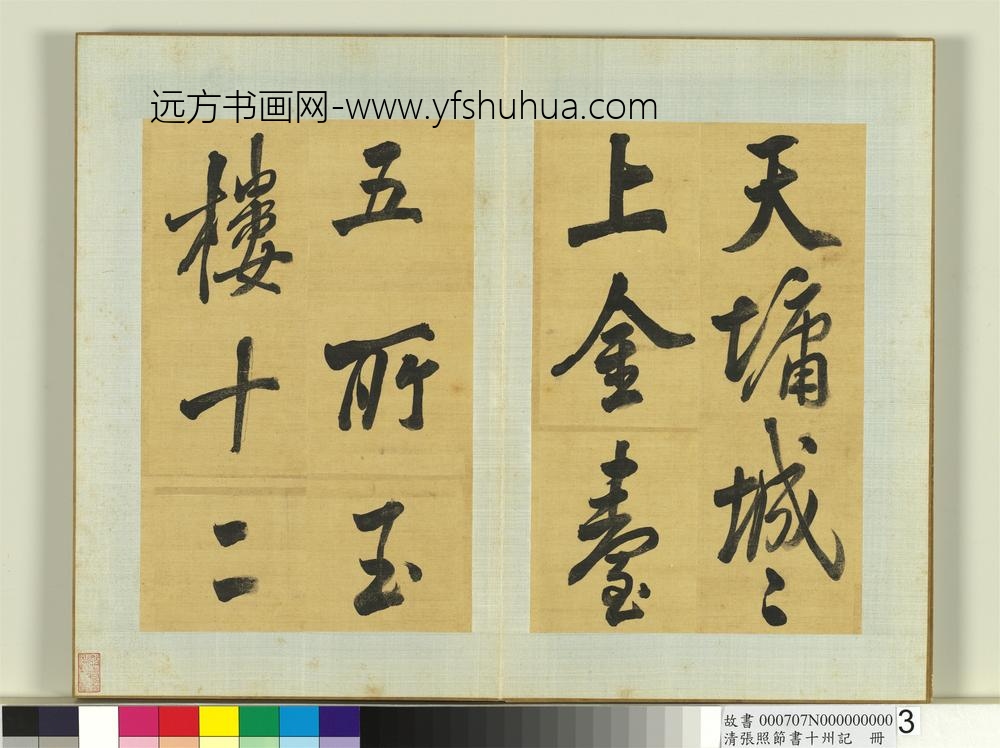 远方书画网-www.yfshuhua.com
天墉城〻
上金臺
五所玉
樓十二
故書 000707N000000000 3
清張照節書十州記 冊